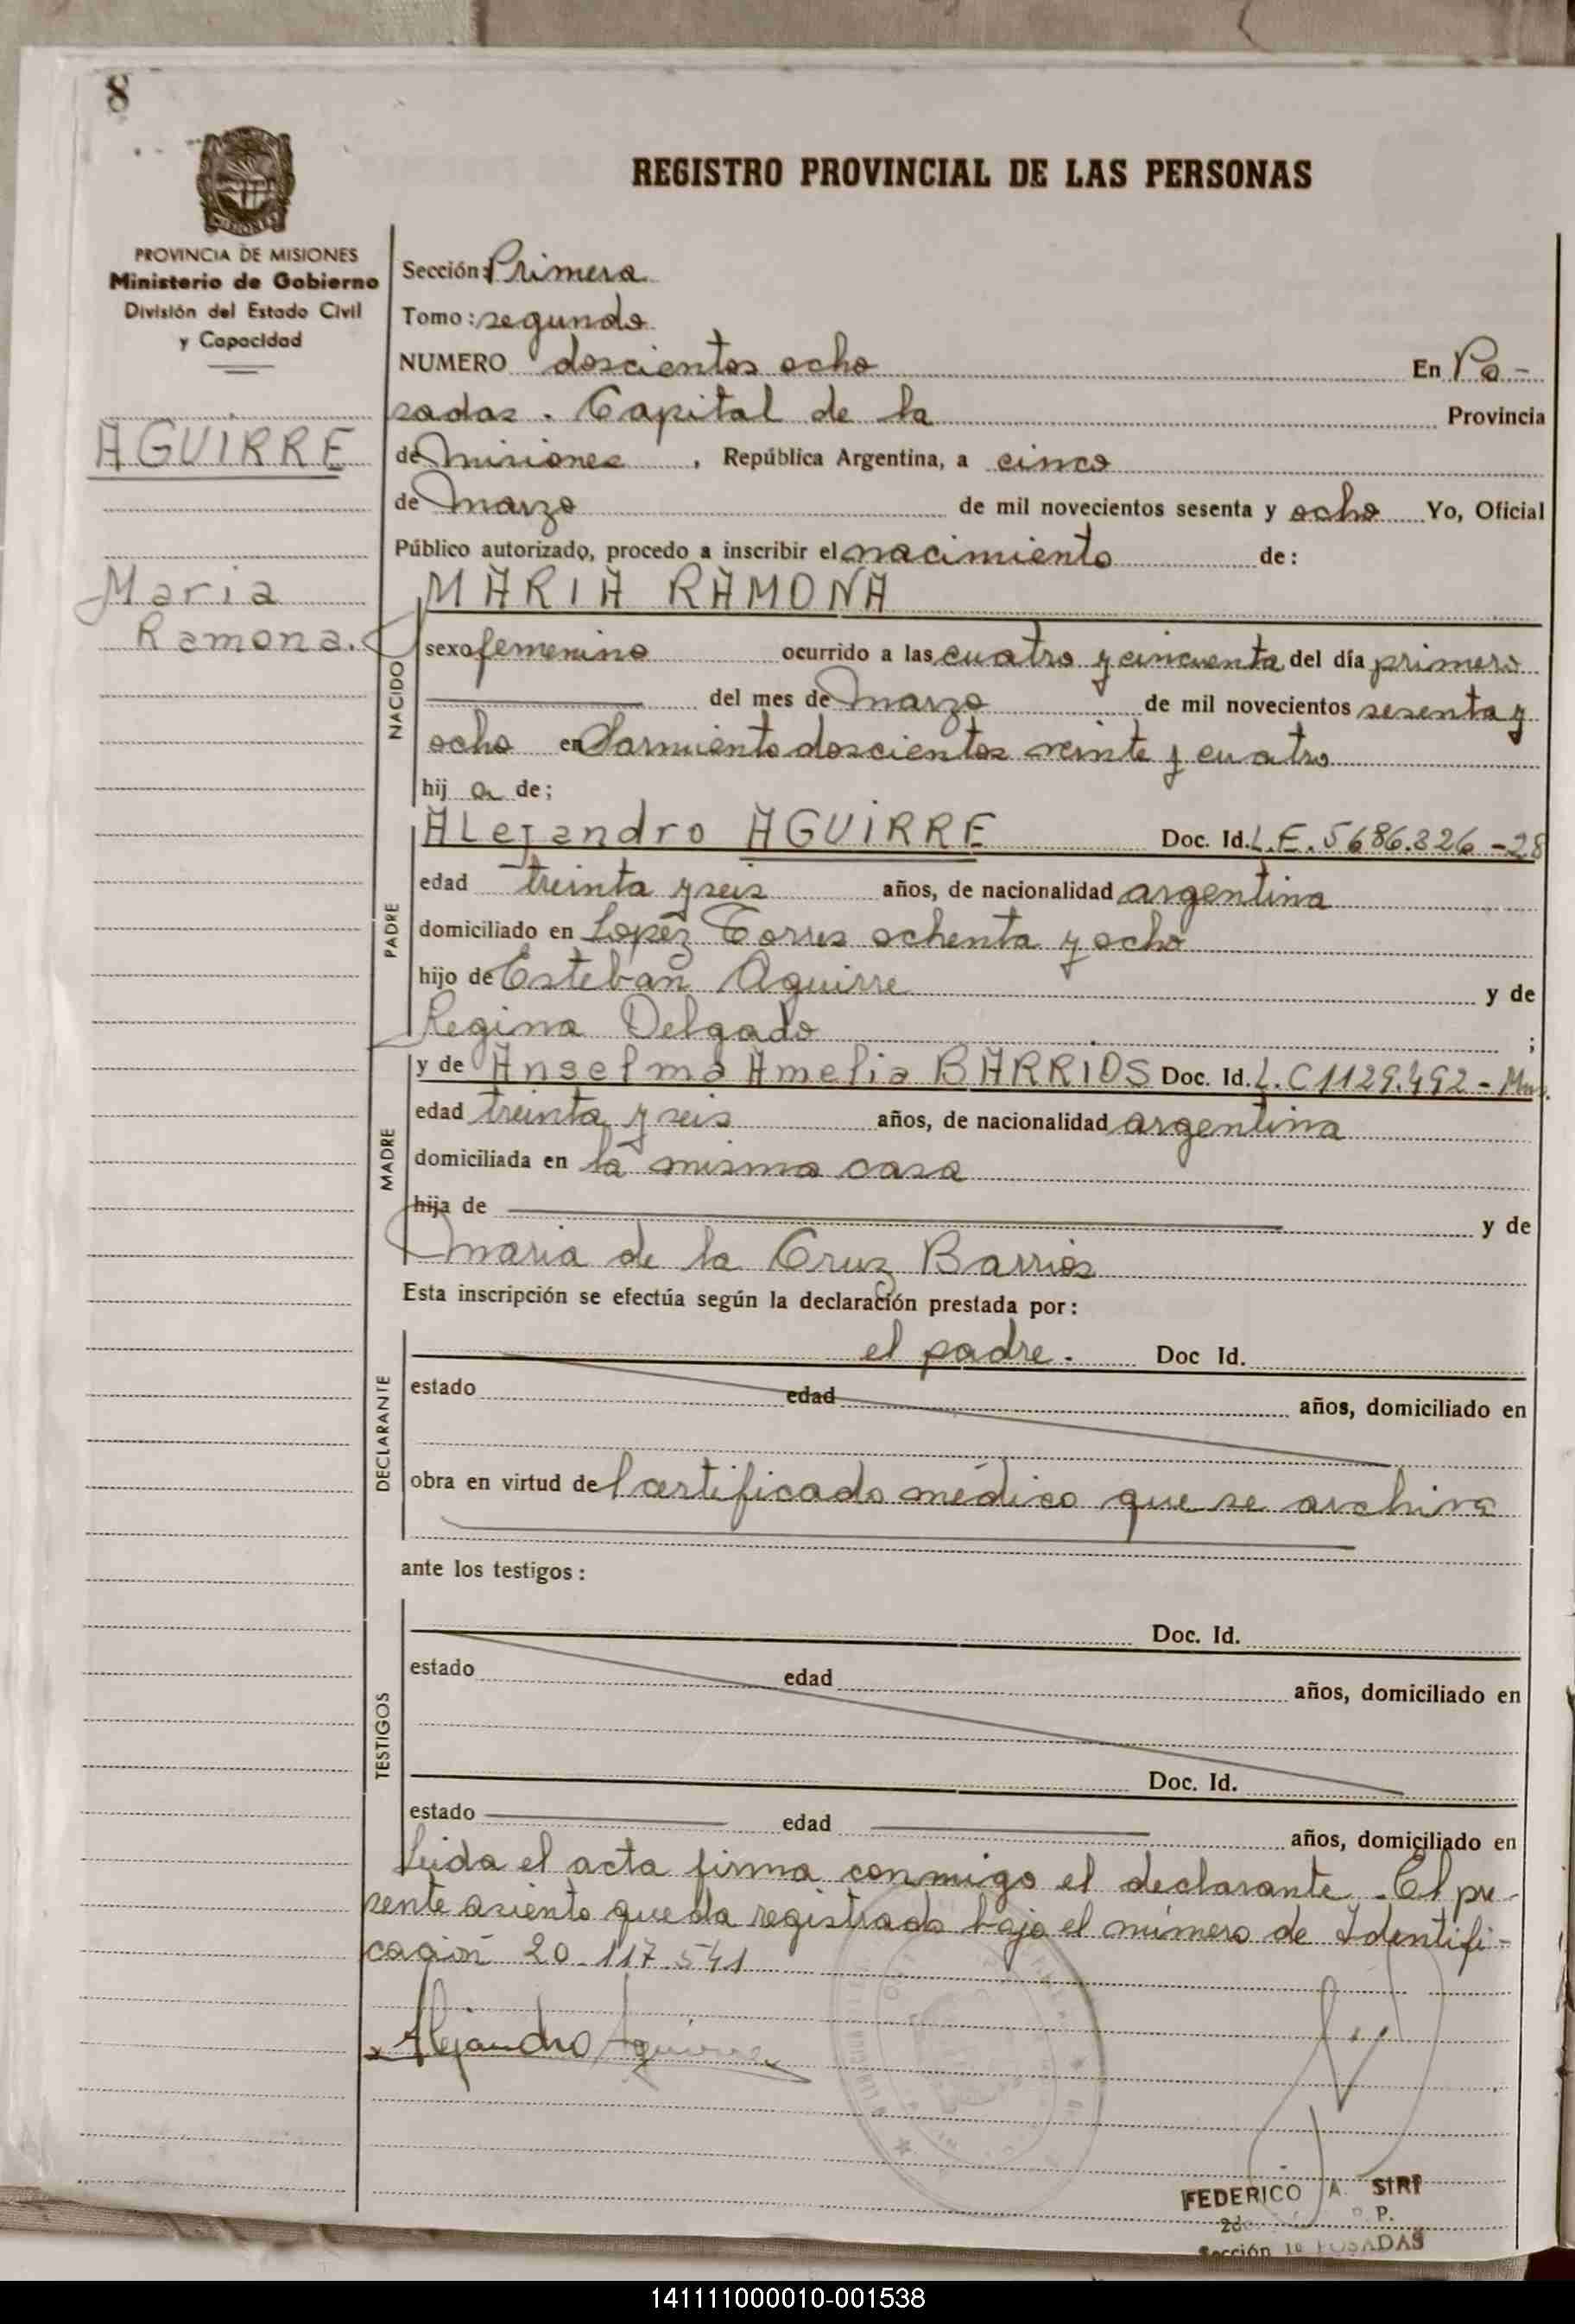 8
REGISTRO PROVINCIAL DE LAS PERSONAS
PROVINCIA DE MISIONES
Ministerio de Gobierno
División del Estado Civil
y Capacidad
AGUIRRE
Maria
Ramona.
Sección: Primera
Tomo: segundo
NUMERO doscientos ocho En Po-
sadas. Capital de la Provincia
de Misiones, República Argentina, a cinco
de Marzo de mil novecientos sesenta y ocho Yo, Oficial
Público autorizado, procedo a inscribir el nacimiento de:
MARIA RAMONA
NACIDO
sexo femenino ocurrido a las cuatro y cincuenta del día primero
del mes de Marzo de mil novecientos sesenta y
ocho en Sarmiento doscientos veinte y cuatro
hij a de;
PADRE
Alejandro AGUIRRE Doc. Id. L.E. 5686.326 -28
edad treinta y seis años, de nacionalidad argentina
domiciliado en Lopez Torres ochenta y ocho
hijo de Esteban Aguirre y de
Regina Delgado ;
MADRE
y de Anselma Amelia BARRIOS Doc. Id. L.C 1129.492 - Mns.
edad treinta y seis años, de nacionalidad argentina
domiciliada en la misma casa
hija de y de
Maria de la Cruz Barrios
Esta inscripción se efectúa según la declaración prestada por:
DECLARANTE
el padre. Doc Id.
estado edad años, domiciliado en
obra en virtud del certificado médico que se archiva
ante los testigos:
TESTIGOS
Doc. Id.
estado edad años, domiciliado en
Doc. Id.
estado edad años, domiciliado en
Leida el acta firma conmigo el declarante. El pre-
sente asiento queda registrado bajo el número de Identifi-
cación 20.117.541
Alejandro Aguirre
FEDERICO A. SIRI
P.
Sección 1a POSADAS
141111000010-001538